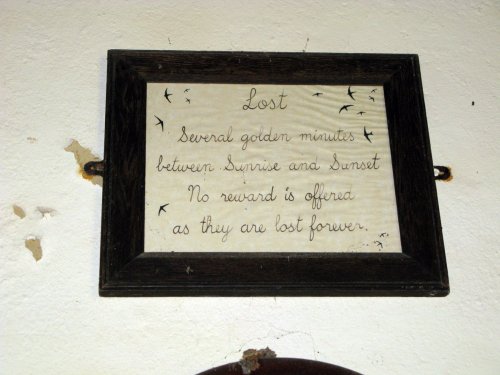 Lost
Several golden minutes
between Sunrise and Sunset
No reward is offered
as they are lost forever.